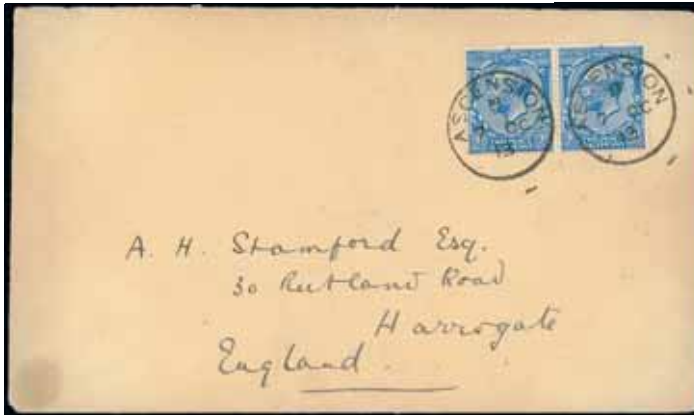 ASCENSION
7 OC
13
ASCENSION
7 OC
13
A. H. Stamford Esq.
30 Rutland Road
Harrogate
England